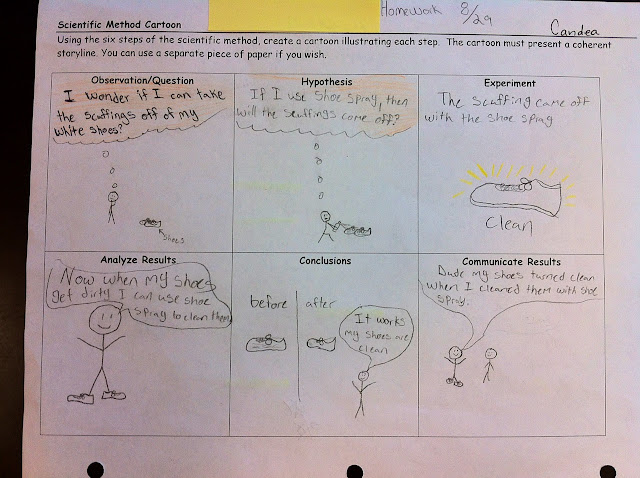 Homework 8/29
Scientific Method Cartoon
Candea
Using the six steps of the scientific method, create a cartoon illustrating each step. The cartoon must present a coherent
storyline. You can use a separate piece of paper if you wish.
Observation/Question
I wonder if I can take
the scuffings off of my
white shoes?
shoes
Hypothesis
If I use shoe spray, then
will the scuffings come off?
Experiment
The scuffing came off
with the shoe spray
Clean
Analyze Results
Now when my shoes
get dirty I can use shoe
spray to clean them
Conclusions
before after
It works
my shoes are
clean
Communicate Results
Dude my shoes turned clean
when I cleaned them with shoe
spray.